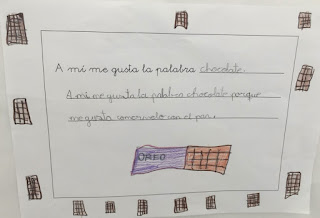 A mí me gusta la palabra chocolate.
A mí me gusta la palabra chocolate porque
me gusta comermelo con el pan.
OREO